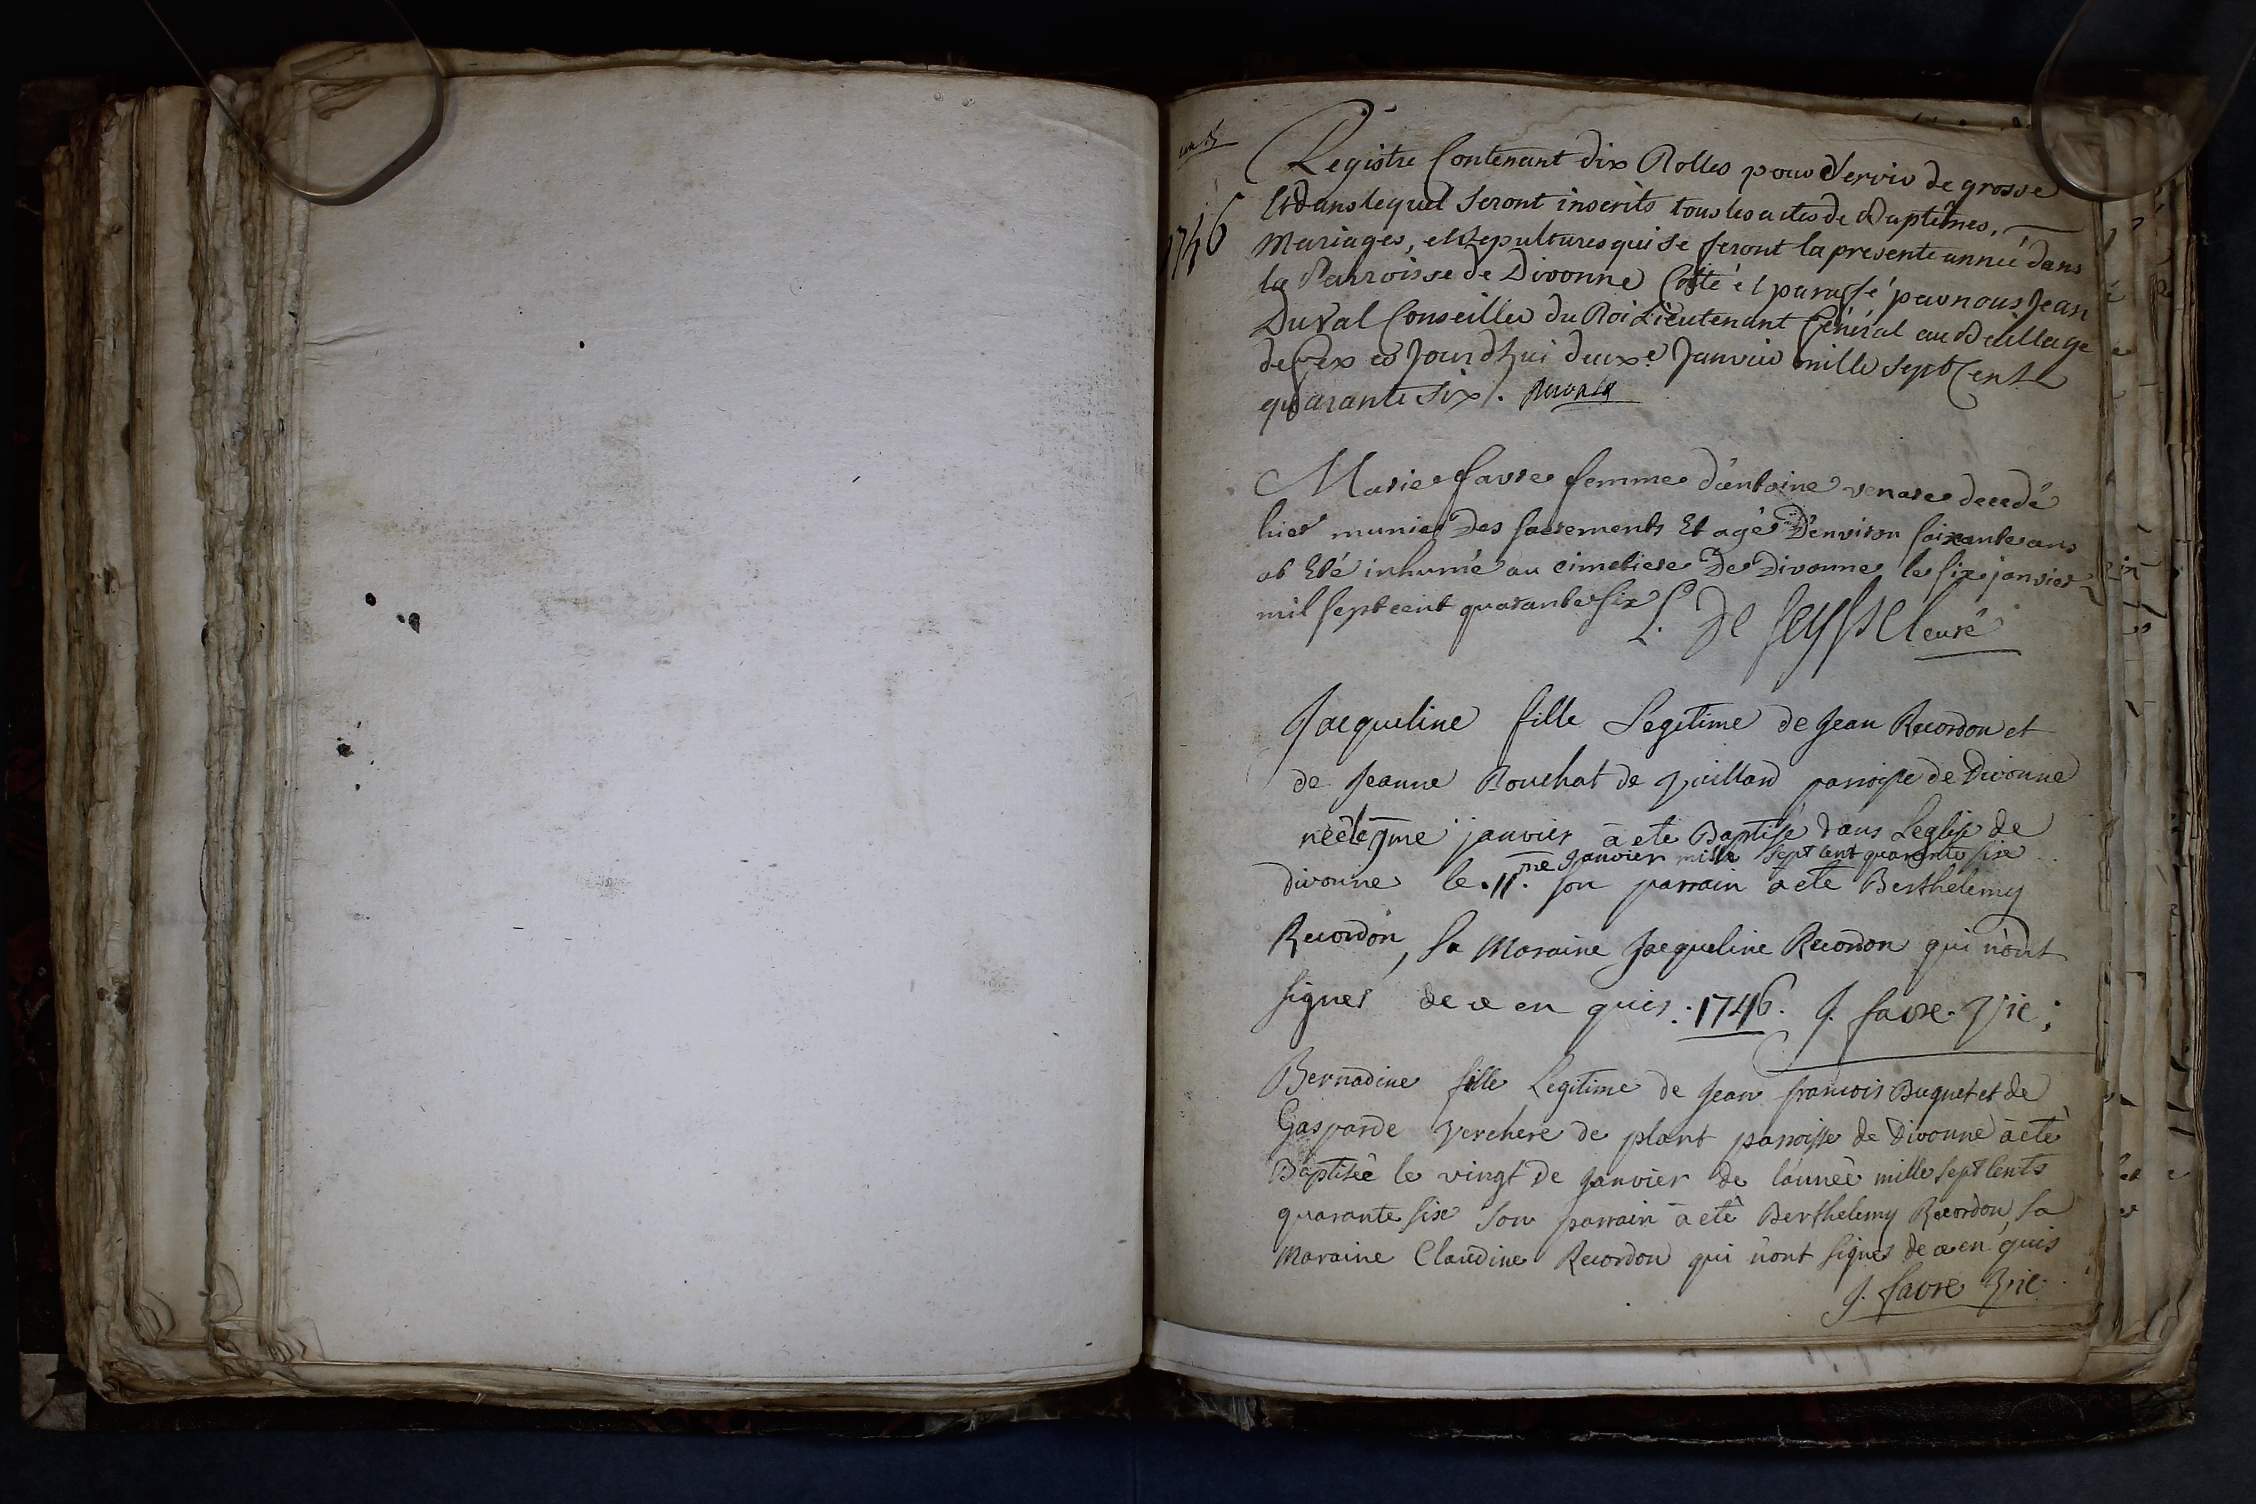 1746
Registre Contenant dix Rolles pour Servir de grosse
Et dans lequel Seront inscrits tous les actes de Baptêmes,
Mariages, et Sepultures qui se feront la presente année dans
la Parroisse de Divonne Cotté et paraffé par nous Jean
Duval Conseiller du Roi Lieutenant Général au Baillage
de Gex ce Jourd'hui deuxe. Janvier mille Sept Cent
quarante Six.
Marie favre femme d'antoine venare decedé
hier munie des sacrements Et agé D'environ soixante ans
at Eté inhumé au cimetiere De Divonne le six janvier
mil sept cent quarante six L. De Seyssel curé
Jacqueline fille Legitime de Jean Recordon et
de Jeanne Bouchat de Villard parroisse de Divonne
née le 9me janvier à eté Baptisé dans Leglise de
Janvier mille Sept cent quarante six
divonne le 11.me son parrain à eté Berthelemy
Recordon, Sa Maraine Jacqueline Recordon qui n'ont
signes de ce en quis. 1746. J. favre Vic;
Bernadine fille Legitime de Jean francois Buquet et de
Gasparde Verchere de plant parroisse de Divonne à eté
Baptisée le vingt de Janvier de l'année mille Sept Cents
quarante six Son parrain à eté Berthelemy Recordon, Sa
Maraine Claudine Recordon qui n'ont signes de ce en quis
J. favre Vic